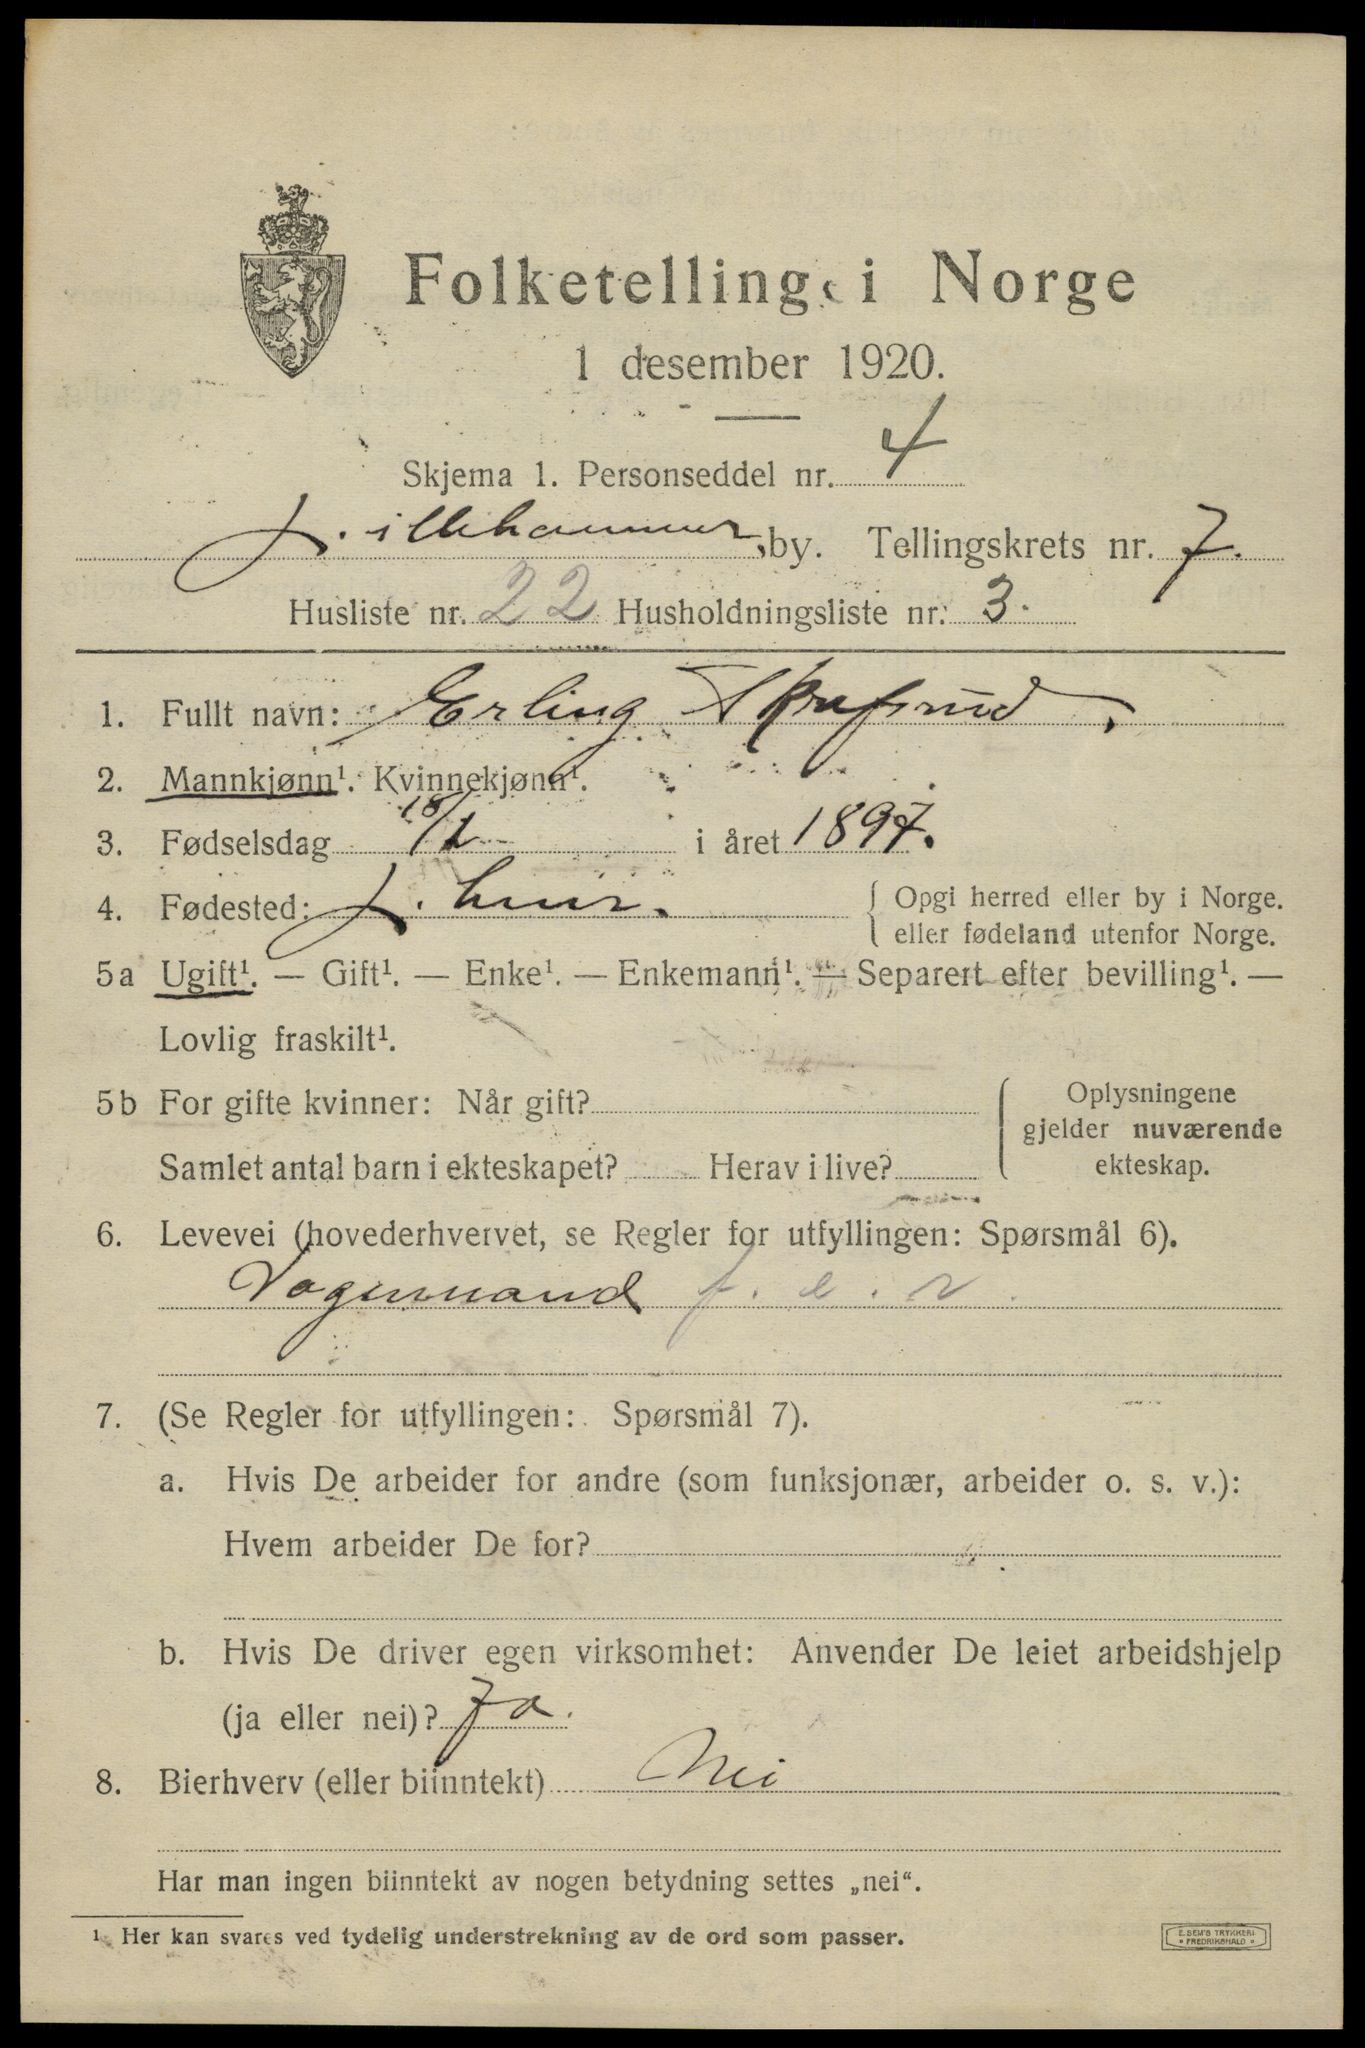 Folketelling i Norge
1 desember 1920.
Skjema 1. Personseddel nr. 4
Lillehammer, by. Tellingskrets nr. 7.
Husliste nr. 22 Husholdningsliste nr. 3.
1. Fullt navn: Erling Skrefsrud
2. Mannkjønn¹. Kvinnekjønn¹.
3. Fødselsdag 18/1 i året 1897.
4. Fødested: L. hmr. { Opgi herred eller by i Norge.
eller fødeland utenfor Norge.
5a Ugift¹. — Gift¹. — Enke¹. — Enkemann¹. — Separert efter bevilling¹. —
Lovlig fraskilt¹.
5b For gifte kvinner: Når gift?
Samlet antal barn i ekteskapet? Herav i live?
Oplysningene
gjelder nuværende
ekteskap.
6. Levevei (hovederhvervet, se Regler for utfyllingen: Spørsmål 6).
Vognmand f. e. r.
7. (Se Regler for utfyllingen: Spørsmål 7).
a. Hvis De arbeider for andre (som funksjonær, arbeider o. s. v.):
Hvem arbeider De for?
b. Hvis De driver egen virksomhet: Anvender De leiet arbeidshjelp
(ja eller nei)? Ja.
8. Bierhverv (eller biinntekt) Nei
Har man ingen biinntekt av nogen betydning settes „nei“.
¹ Her kan svares ved tydelig understrekning av de ord som passer.
E. SEM'S TRYKKERI
FREDRIKSHALD